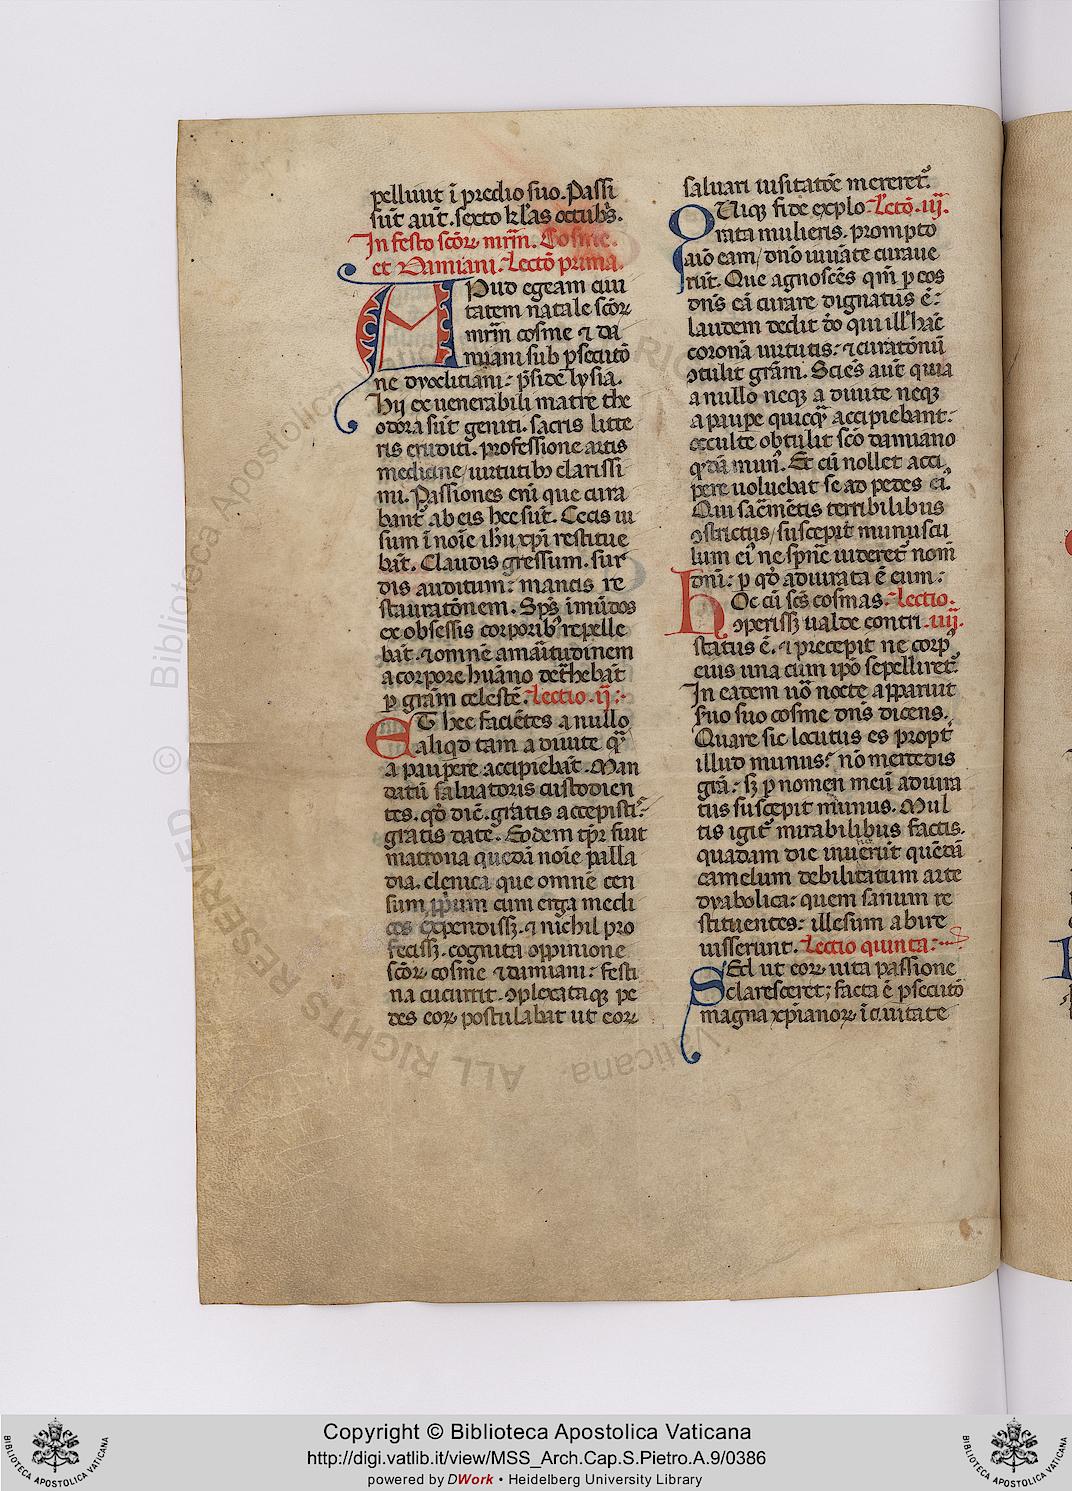 pelliūt ī predio suo. Passi
sūt aūt. sexto kl̄as octub̄s.
In festo sc̄oꝝ mr̄m. Cosme.
et Damiani. Lectō prima.
APud egeam ciui
tatem natale sc̄oꝝ
mr̄m cosme ⁊ da
miani sub ꝑsecutō
ne dyoclitiani: p̄side lysia.
Hij ex uenerabili matre the
odora sūt geniti. sacris litte
ris eruditi. professione artis
medicine, uirtutibꝫ clarissi
mi. Passiones eni que cura
bant̄ ab eis hee sūt. Cecis ui
sum ī noīe ih̄u xp̄i restitue
bāt. Claudis gressum. sur
dis auditum: mancis re
stauratōnem. Sp̄s īmūdos
ex obsessis corporibꝰ repelle
bāt. ⁊ omnē amāitudinem
a corpore hūano det̄hebāt
ꝑ grām celestē. Lectio .ij.
ET hec faciētes a nullo
aliqd tam a diuite qᷓ
a paupere accipiebāt. Man
datū saluatoris custodien
tes. qd̄ diē. gratis accepisti:
gratis date. Eodem tp̄r fuit
matrona quedā noīe palla
dia. clenica que omnē cen
sum ip̄ium cum erga medi
cos expendissꝫ. ⁊ nichil pro
fecissꝫ. cognita oppinione
sc̄oꝝ cosme ⁊ damiani: festi
na cucurrit. ꝯplexataqꝫ pe
des eoꝝ postulabat ut eoꝝ
saluari uisitatōe mereret᷑.
QUiqꝫ fide explo Lectō .iij.
rata mulieris. prompto
aīo eam, dn̄o iuuāte curaue
rūt. Que agnoscēs qm̄ ꝑ eos
dn̄s eā curare dignatus ē:
laudem dedit dō qui ill̓ hāc
coronā uirtutis: ⁊ curatōnū
ꝯtulit grām. Sciēs aūt quia
a nullo neqꝫ a diuite neqꝫ
a paupe quicqᷓ accipiebant:
occulte obtulit sc̄o damiano
qᷓdā mun̄. Et cū nollet acci
pere uoluebat se ad pedes eiꝰ.
Qui sac̄mētis terribilibus
ꝯstrictus, suscepit munuscu
lum eiꝰ ne spn̄e uideret᷑ nom̄
dn̄i: ꝑ qd̄ adiurata ē eum:
HOc cū sc̄s cosmas. Lectio.
ꝯperissꝫ ualde contri .iiij.
status ē. ⁊ precepit ne corpꝰ
eius una cum ip̄o sepelliret᷑.
In eadem uo nocte apparuit
suo suo cosme dn̄s dicens.
Quare sic locutus es propt̄
illud munus: nō mercedis
grā: sꝫ ꝑ nomen meū adiura
tus suscepit munus. Mul
tis igit᷑ mirabilibus factis.
quadam die inuenerūt quēdā
camelum debilitatum arte
dyabolica: quem sanum re
stituentes: illesum abire
iusserunt. Lectio quinta:
SEd ut eoꝝ uita passione
claresceret; facta ē ꝑsecutō
magna xp̄ianoꝝ ī ciuitate
© Biblioteca Apostolica Vaticana ALL RIGHTS RESERVED
Copyright © Biblioteca Apostolica Vaticana
http://digi.vatlib.it/view/MSS_Arch.Cap.S.Pietro.A.9/0386
powered by DWork • Heidelberg University Library
BIBLIOTECA APOSTOLICA VATICANA
BIBLIOTECA APOSTOLICA VATICANA